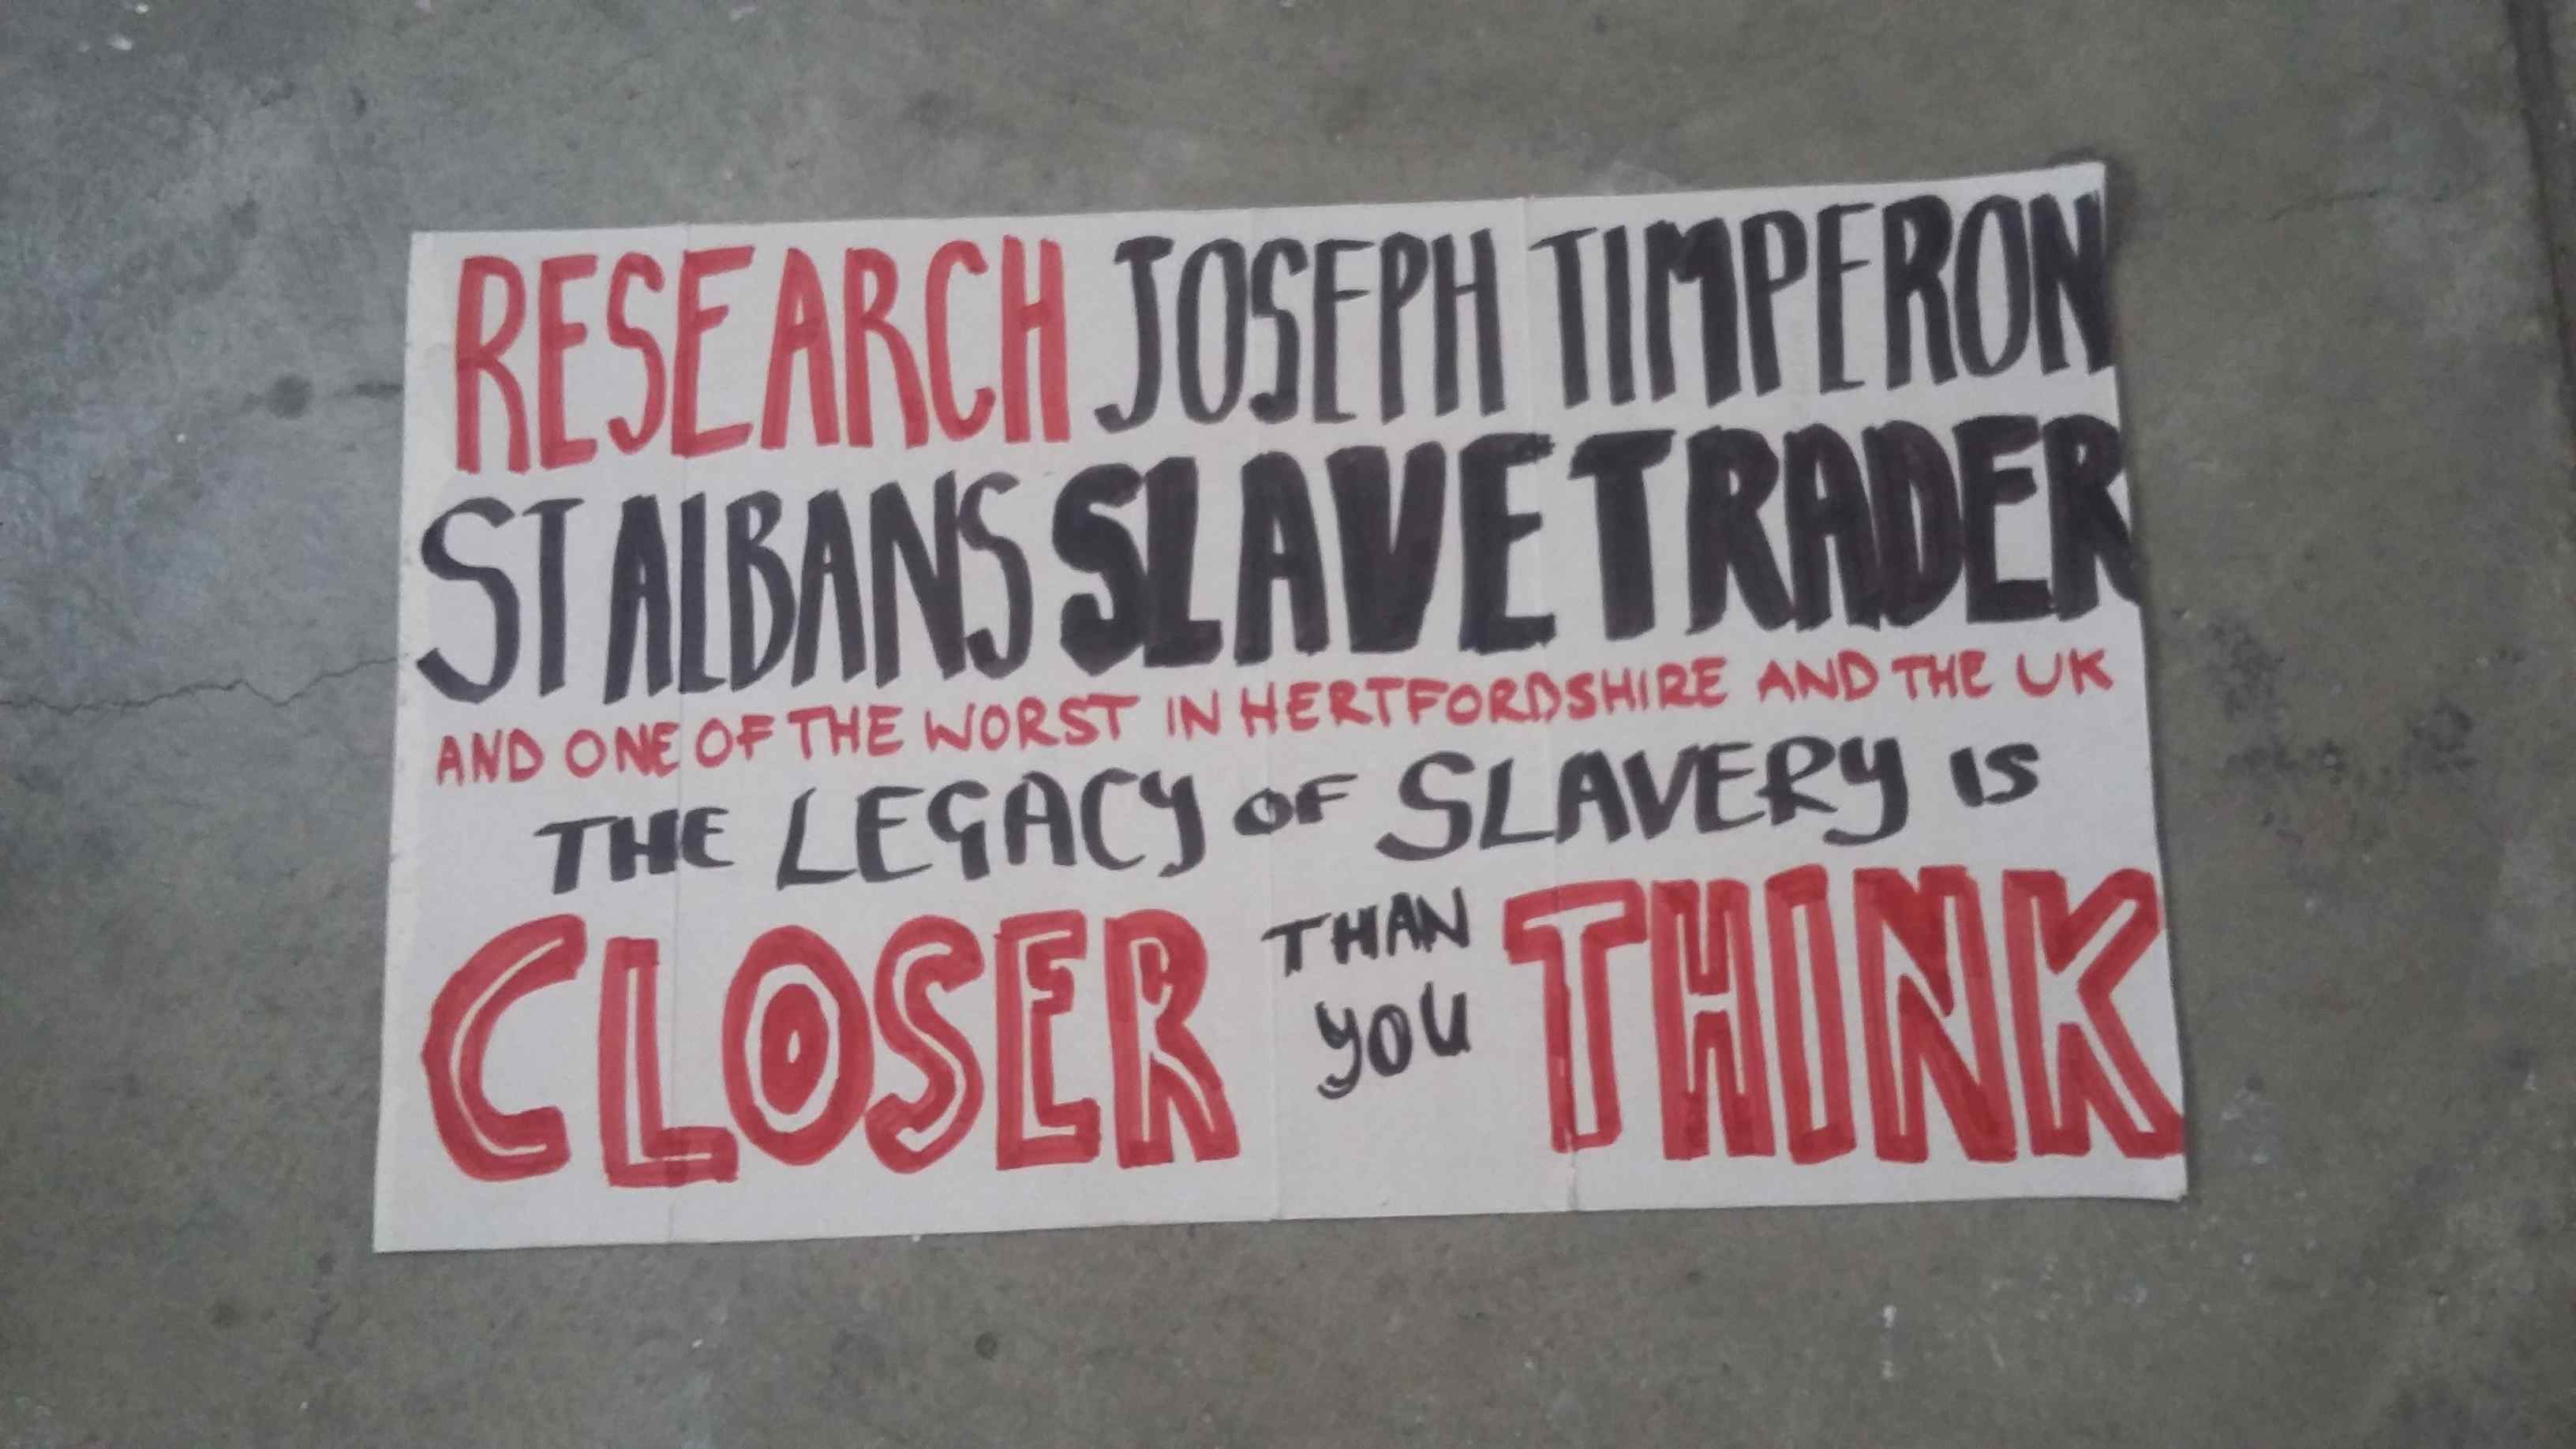 RESEARCH JOSEPH TIMPERON
ST ALBANS SLAVE TRADER
AND ONE OF THE WORST IN HERTFORDSHIRE AND THE UK
THE LEGACY OF SLAVERY IS
CLOSER THAN YOU THINK